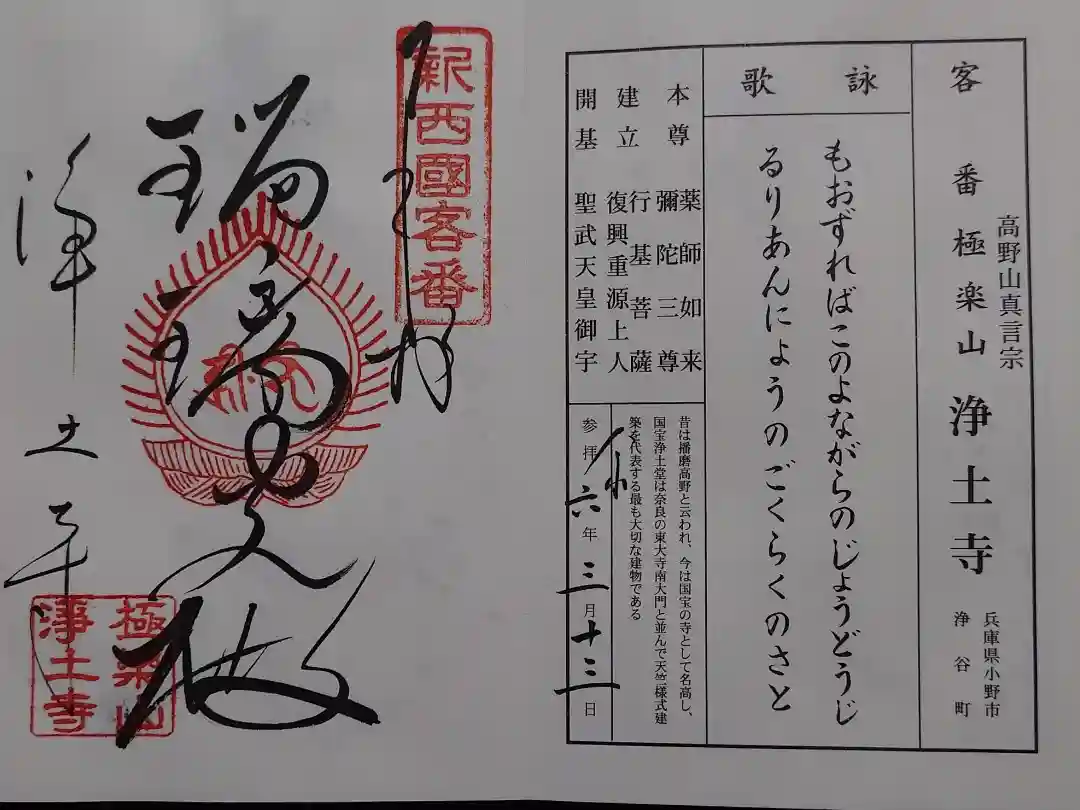 高野山真言宗
客番 極楽山 浄土寺
兵庫県小野市
浄谷町
詠歌
もおずればこのよながらのじょうどうじ
るりあんにょうのごくらくのさと
本尊 薬師如来
彌陀三尊
建立 行基菩薩
復興重源上人
開基 聖武天皇御宇
昔は播磨高野と云われ、今は国宝の寺として名高し、
国宝浄土堂は奈良の東大寺南大門と並んで天竺様式建
築を代表する最も大切な建物である
参拝 令六年三月十三日
新西國客番
奉拝
瑠璃光殿
浄土寺
極樂山
淨土寺